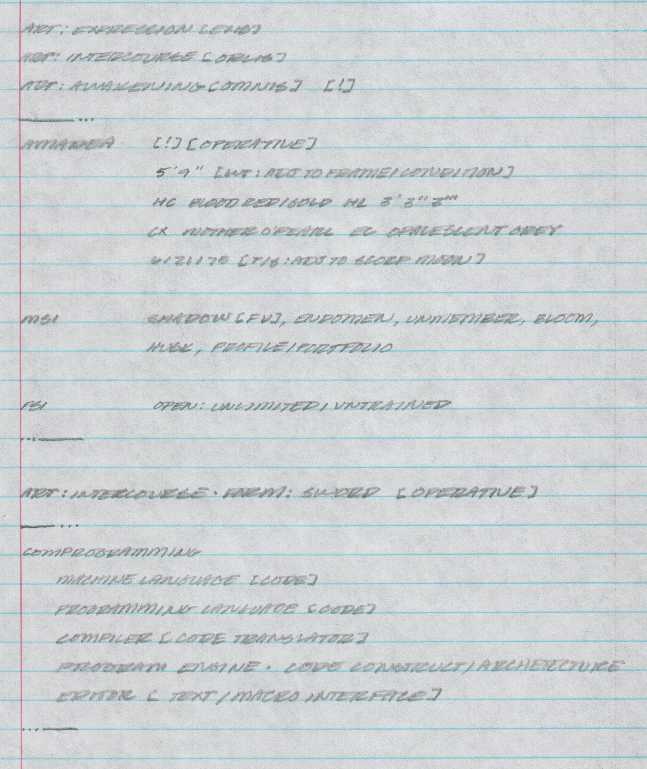 ART: EXPRESSION [EHO]
ART: INTERCOURSE [ORLIS]
ART: AWAKENING [OMNIS] [!]
...
[!] [OPERATIVE]
5'9" [WT: ADJ TO FRAME/CONDITION]
HC BLOOD RED/GOLD HL 3'3"3"'
CX MOTHER O'PEARL EC OPALESCENT GREY
6/21/75 [T/S: ADJ TO SCORP MOON]
MSI SHADOW [FV], ENDOMEN, UNMEMBER, BLOOM,
HUSK, PROFILE/PORTFOLIO
FSI OPEN: UNLIMITED/UNTRAINED
...
ART: INTERCOURSE · FORM: SWORD [OPERATIVE]
...
COMPROGRAMMING
MACHINE LANGUAGE [CODE]
PROGRAMMING LANGUAGE [CODE]
COMPILER [CODE TRANSLATOR]
PROGRAM ENGINE · CODE CONSTRUCT/ARCHETECTURE
EDITOR [TEXT/MACRO INTERFACE]
...